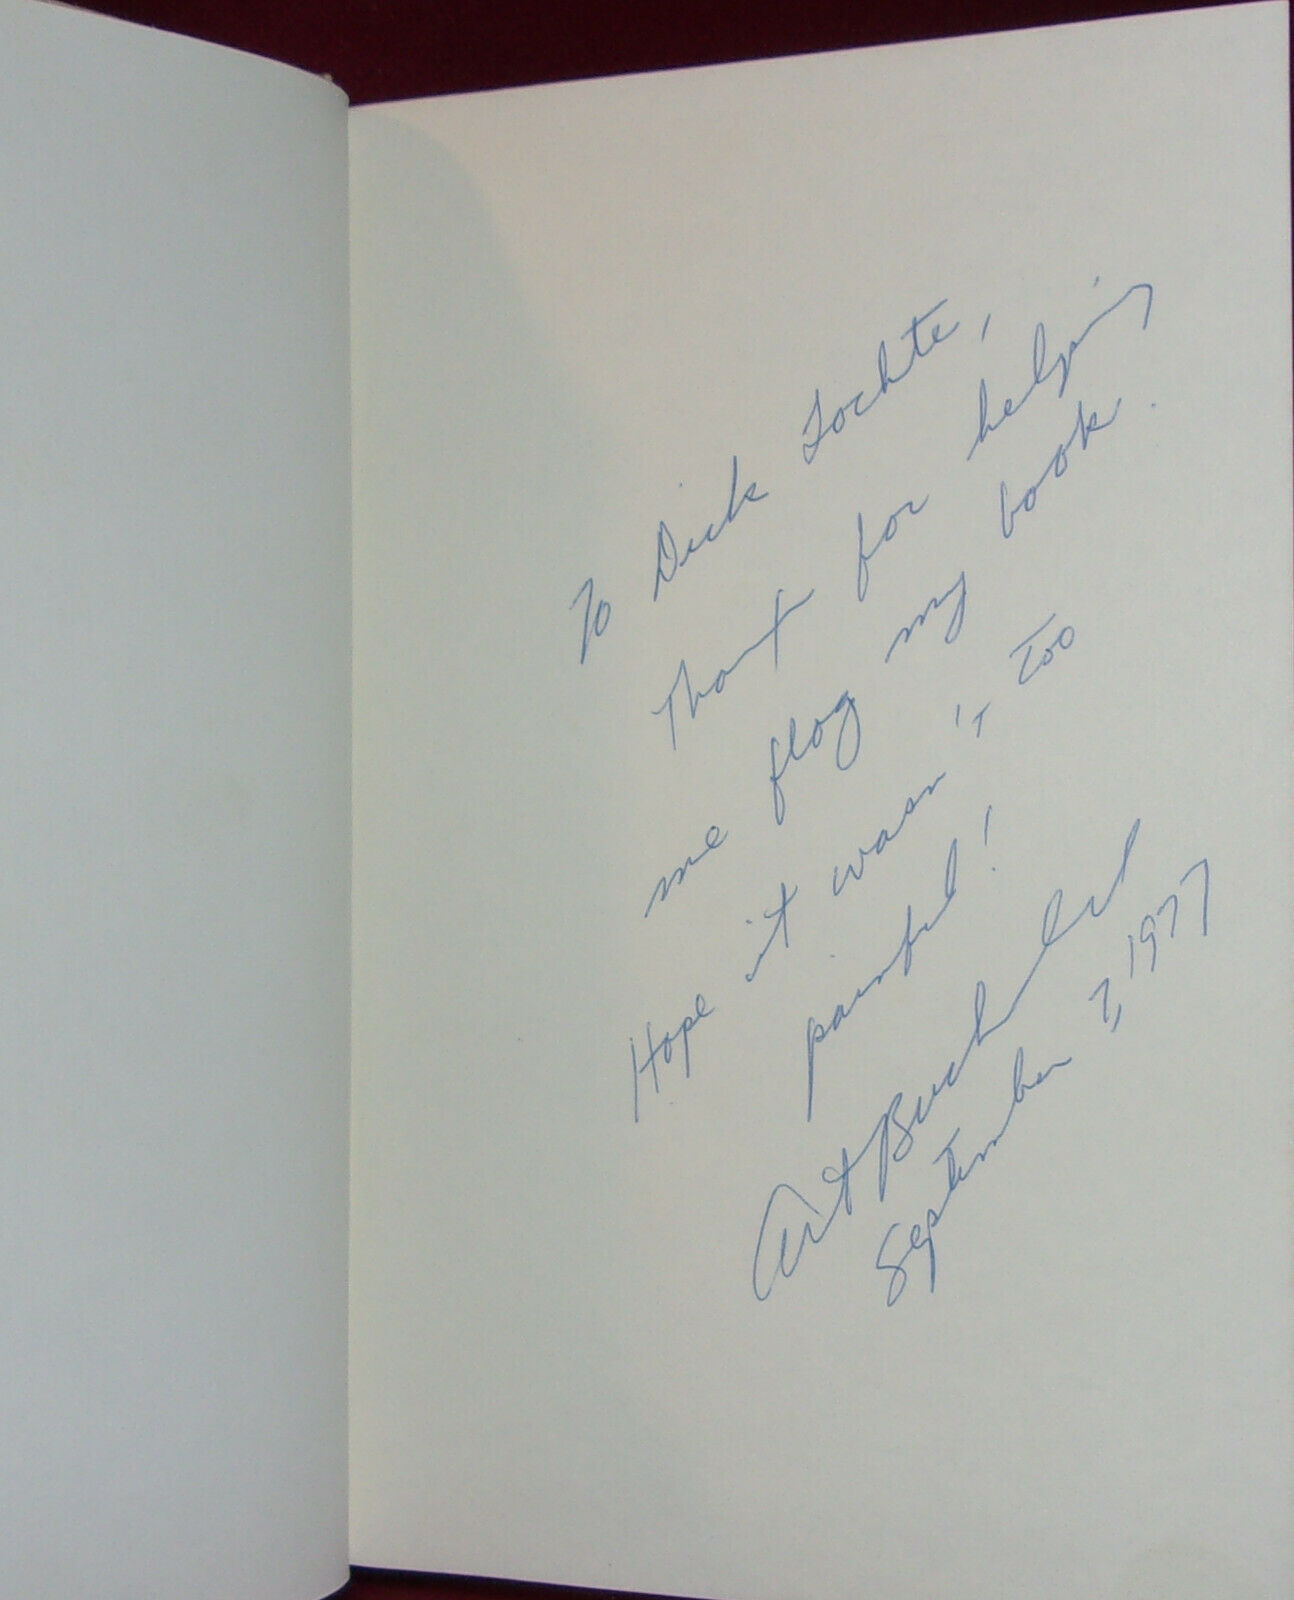 To Dick Lochte,
Thanx for helping
me flog my book.
Hope it wasn't too
painful!
Art Buchwald
September 7, 1977